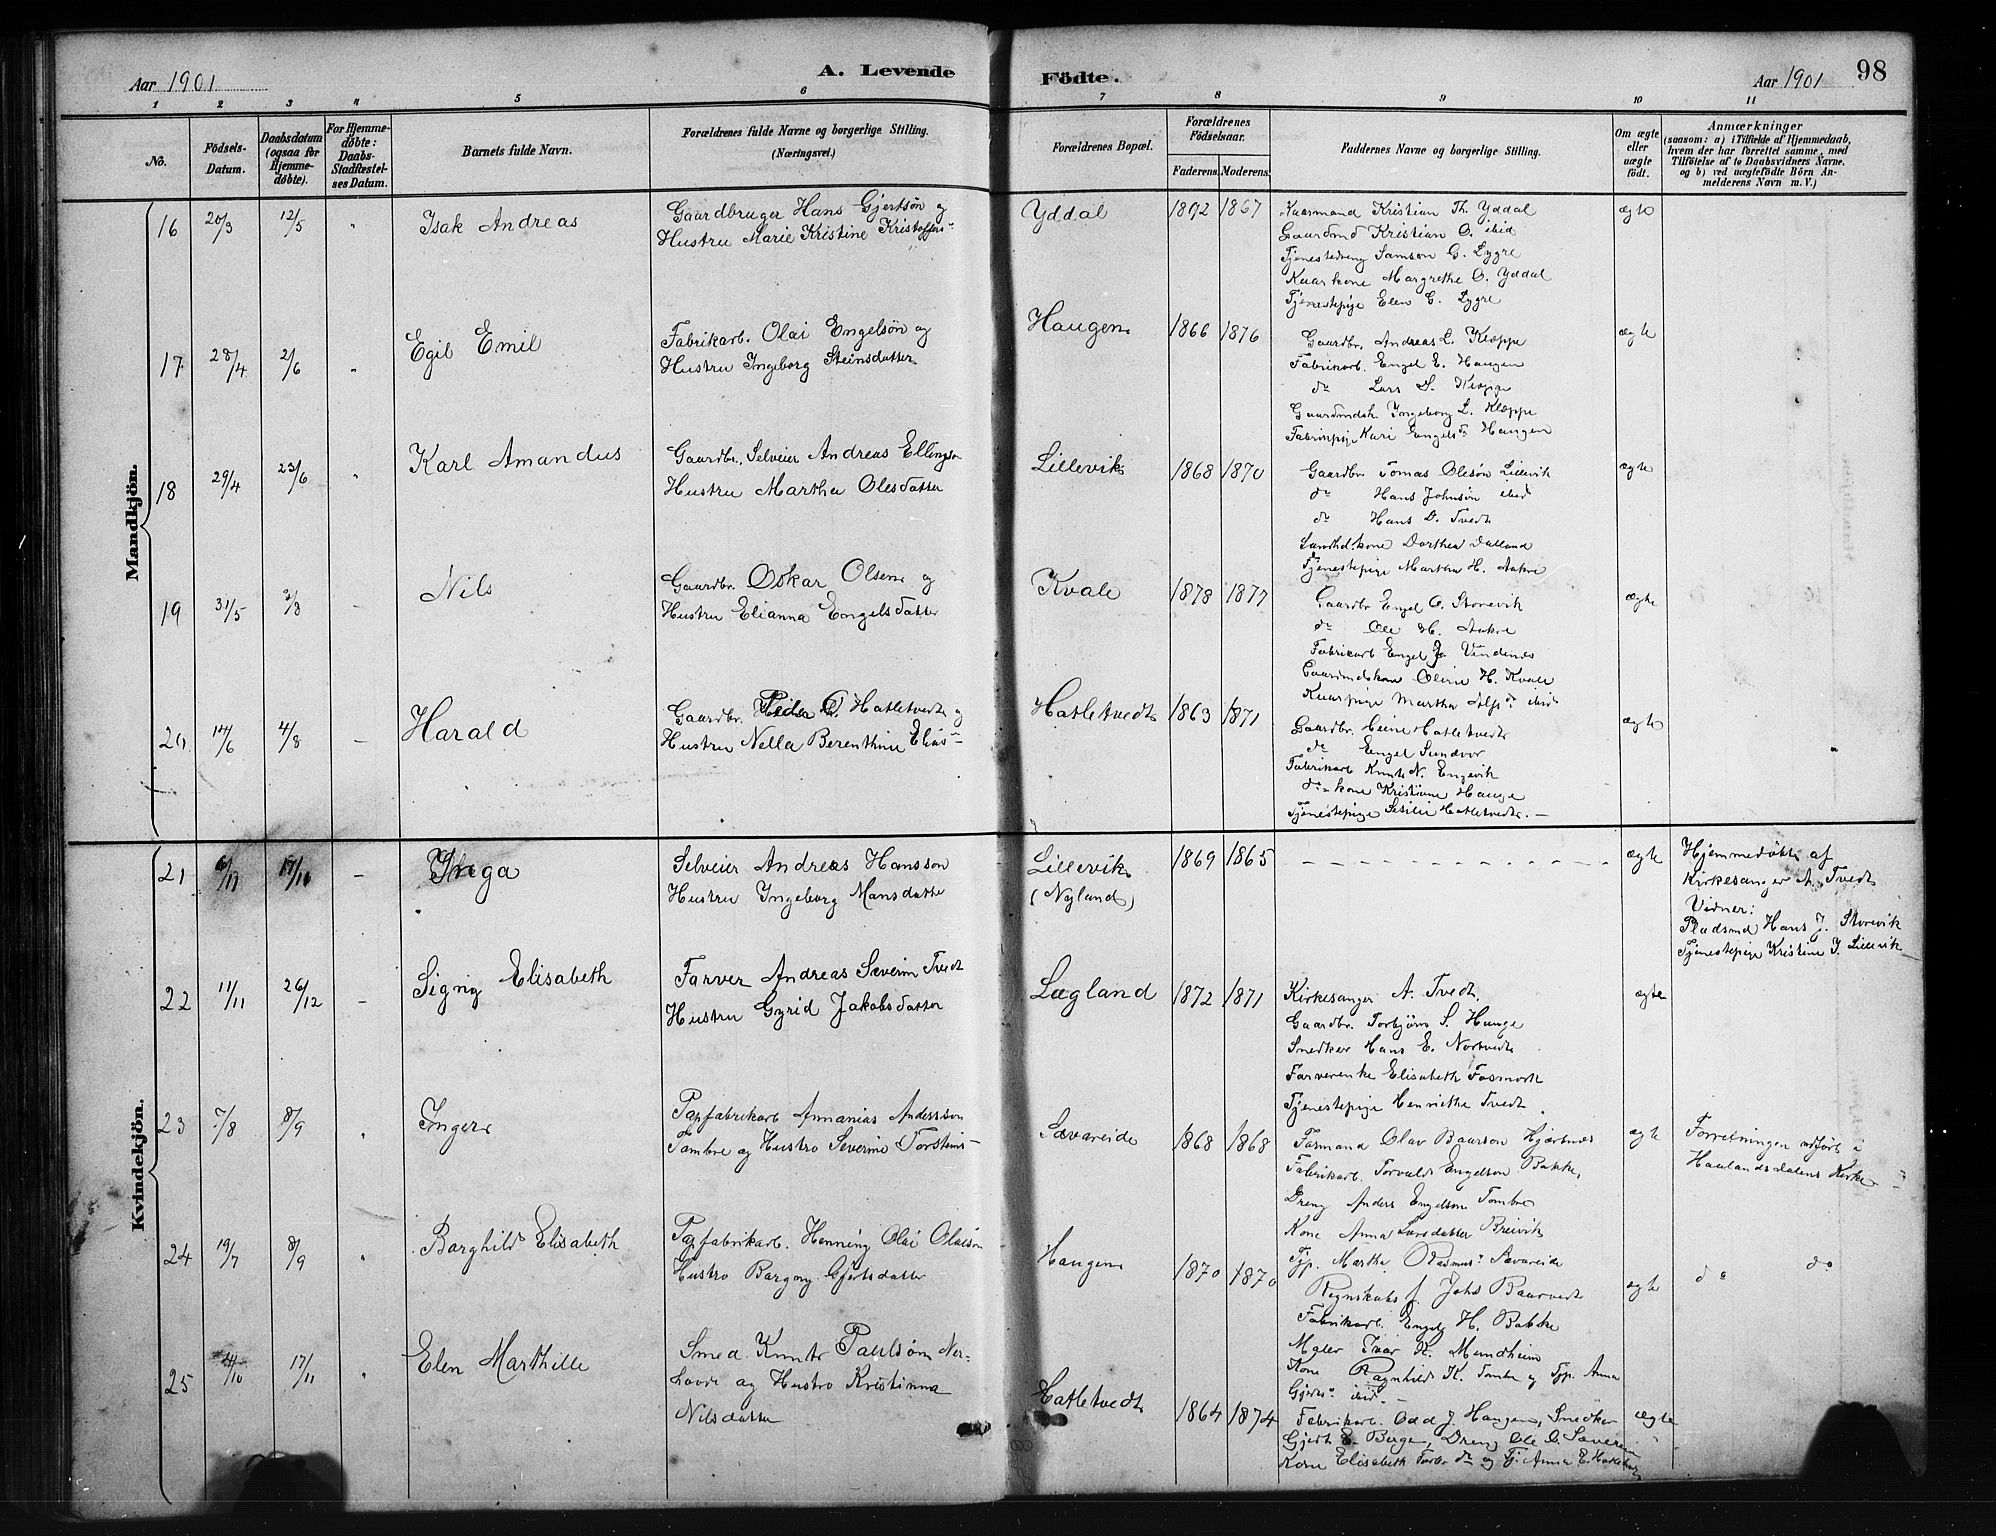 Aar 1901
A. Levende
Födte.
Aar 1901
98
1 2 3 4 5 6 7 8 9 10 11
No.
Födsels-Datum.
Daabsdatum (ogsaa for Hjemme-döbte).
For Hjemme-döbte: Daabs-Stadfæstel-ses Datum.
Barnets fulde Navn.
Forældrenes fulde Navne og borgerlige Stilling.
(Næringsvei.)
Forældrenes Bopæl.
Forældrenes Födselsaar.
Faderens. Moderens.
Faddernes Navne og borgerlige Stilling.
Om ægte eller uægte födt.
Anmærkninger
(saasom: a) i Tilfælde af Hjemmedaab, hvem der har forrettet samme, med Tilföielse af to Daabsvidners Navne, og b) ved uægtefödte Börn Anmelderens Navn m. V.)
Mandkjön.
16 20/3 12/5 " Isak Andreas
Gaardbruger Hans Gjertsön og
Hustru Marie Kristine Kristoffers"
Yddal 1892 1867
Kaarmand Kristian Th. Yddal
Gaardmd Kristian O. ibid
Tjenestedreng Samson G. Lygre
Kaarkone Margrethe O. Yddal
Tjenestepige Elen G. Lygre
ægte
17 28/4 2/6 " Egil Emil
Fabrikarb. Olai Engelsön og
Hustru Ingeborg Steinsdatter
Haugen 1866 1876
Gaardbr. Andreas L. Kleppe
Fabrikarb. Engel E. Haugen
do Lars S. Kleppe
Gaardmdsk. Ingeborg L. Kleppe
Fabrikpige Kari Engelsdr Haugen
ægte
18 29/4 23/6 " Karl Amandus
Gaardbr. Selveier Andreas Ellingsen
Hustru Martha Olesdatter
Lillevik 1868 1870
Gaardbr Tomas Olesön Lillevik
do Hans Johnsön ibid
do Hans D. Tvedt
Sandhd.kone Dorthea Dalland
Tjenestepige Martha H. Aakre
ægte
19 31/5 3/8 - Nils
Gaardbr. Oskar Olsen og
Hustru Elianna Engelsdatter
Kvale 1878 1877
Gaardbr Engel O. Storevik
do Ole H. Aakre
Fabrikarb Engel J. Vindenes
Gaardmdskone Oline H. Kvale
Kaarpige Martha ibid
ægte
20 14/6 4/8 - Harald
Gaardbr. Peder O. Hatletvedt og
Hustru Nella Berenthine Elias"
Hatletvedt 1863 1871
Gaardbr. Heine Hatletvedt
do Engel Sundvor
Fabrikarb Knut N. Engevik
do kone Kristine Hauge
Tjenestepige Sesilie Hatletvedt. -
ægte
Kvindekjön.
21 - Inga
Selveier Andreas Hansson
Hustru Ingeborg Mansdatter
Lillevik
(Nyland)
1869 1865
ægte
Hjemmedøbt af
Kirkesanger A. Tvedt
Vidner:
Pladsmd Hans J. Storevik
Tjenestepige Kristine J. Lillevik
22 11/11 26/12 - Signy Elisabeth
Farver Andreas Severin Tvedt
Hustru Gyrid Jakobsdatter
Lægland 1872 1871
Kirkesanger A. Tvedt.
Gaardbr. Torbjörn S. Hauge
Snedker Hans E. Nortvedt
Farverenke Elisabeth Fosmark
Tjenestepige Henriette Tvedt.
ægte
23 7/8 8/9 " Inger
Papfabrikarb Annanias Andersson
Tombre og Hustro Severine Torsteins-
Sævareide 1868 1868
Formand Olav Baarson Hjertnes
Fabrikarb. Torvald Engelson Bakke,
Dreng Anders Engelson Tombre
Kone Anna Larsdatter Breivik
Tjp. Martha Rasmus" Sævareide
ægte
Forretningen udført i
Haalandsdalens Kirke
24 19/7 8/9 " Borghild Elisabeth
Papfabrikarb. Henning Olai Olaison
Hustro Borgny Gjertsdatter
Haugen 1870 1870
Regnskabsf. Johs Baarvedt
Fabrikarb. Engel H. Bakke
Maler Ivar K. Mundheim
Kone Ragnhild K. Tombre og Tjp. Anna
Gjerts" ibid -
ægte
do do
25 17/11 " Elen Marthille
Smed Knut Paulsøn Ner-
hovde og Hustro Kristinna
Nilsdatter
Hatletvedt 1864 1874
Fabrikarb. Odd J. Haugen, Snedker
Gjert E. Berge, Dreng Ole O. Sæverei
Kone Elisabeth do og Tj. Anna E. Hatletvedt
ægte